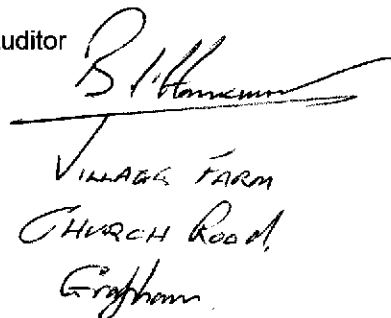 auditor
VILLAGE FARM
CHURCH ROAD,
Grafham.